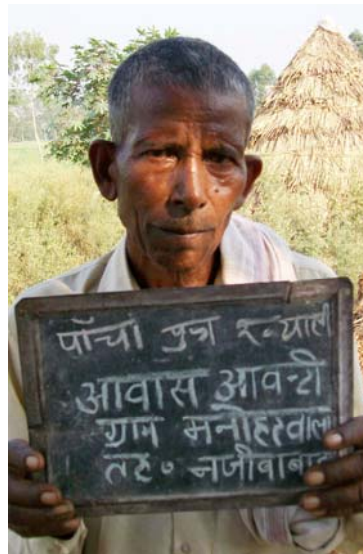 पाँचा पुत्र ख्याली
आवास आवन्टी
ग्राम मनोहरवाला
तह० नजीबाबाद